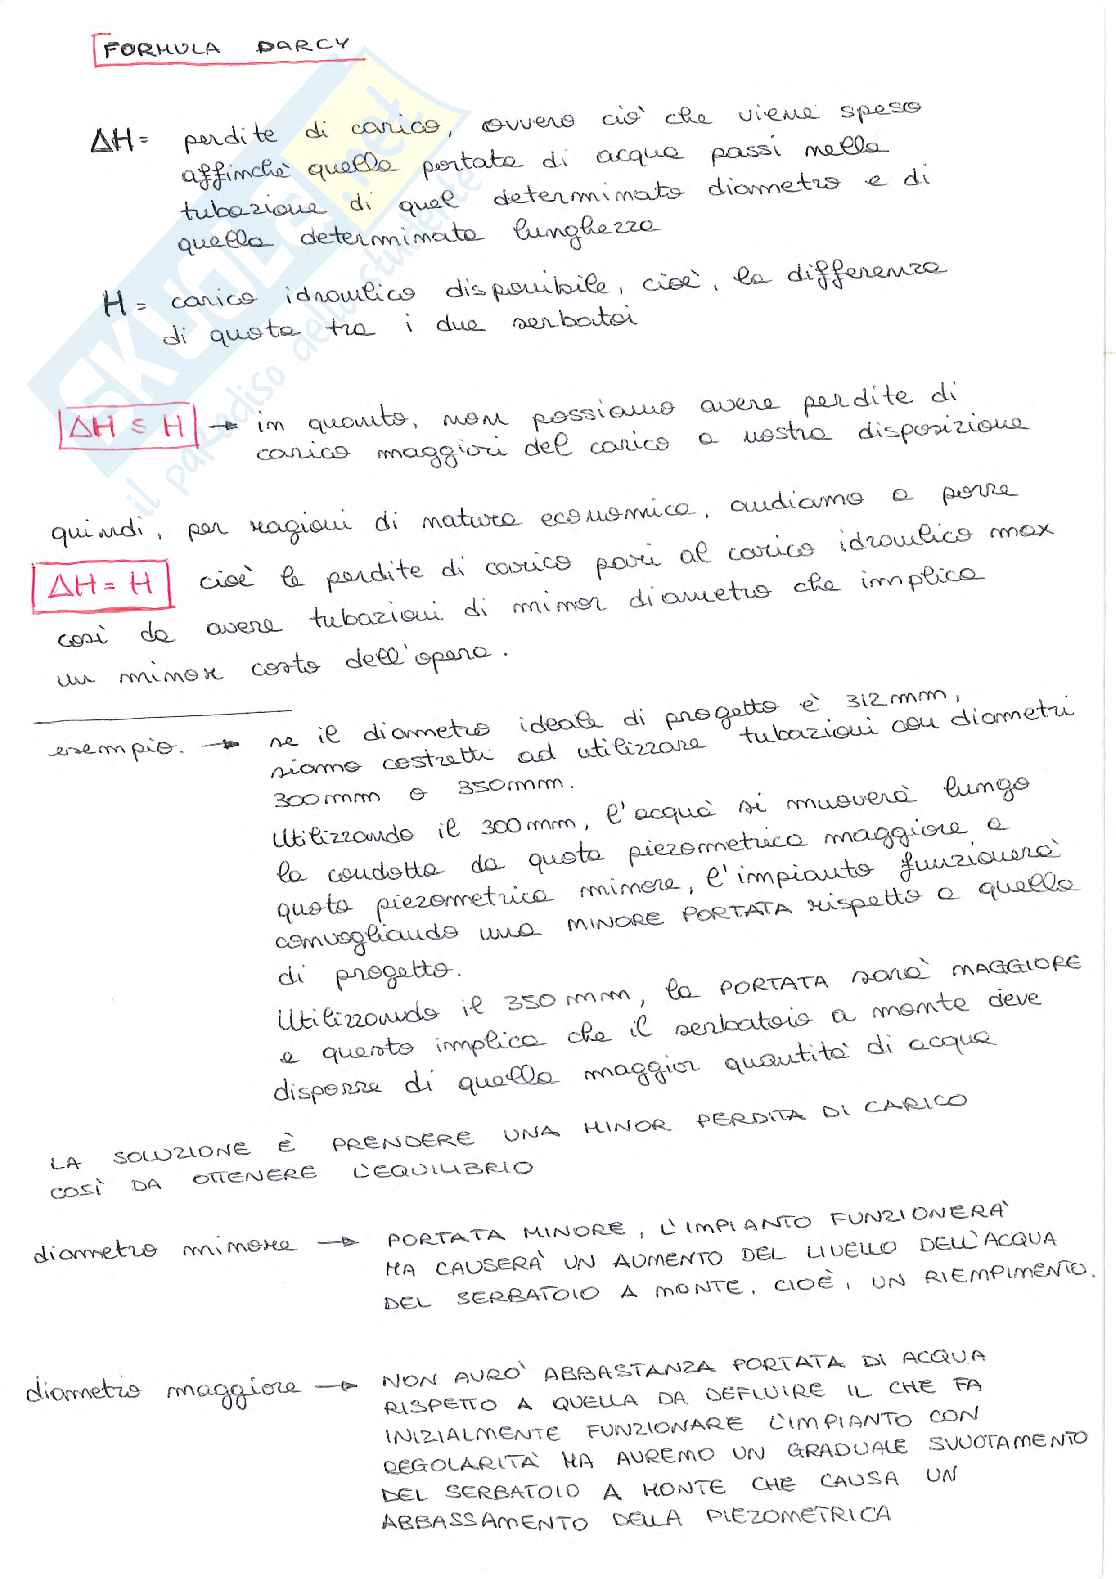 FORMULA DARCY
ΔH = perdite di carico, ovvero ciò che viene speso
affinchè quella portata di acqua passi nella
tubazione di quel determinato diametro e di
quella determinata lunghezza
H = carico idraulico disponibile, cioè, la differenza
di quota tra i due serbatoi
ΔH ≤ H → in quanto, non possiamo avere perdite di
carico maggiori del carico a nostra disposizione
quindi, per ragioni di natura economica, andiamo a porre
ΔH = H cioè le perdite di carico pari al carico idraulico max
così da avere tubazioni di minor diametro che implica
un minore costo dell'opera.
esempio. → se il diametro ideale di progetto è 312mm,
siamo costretti ad utilizzare tubazioni con diametri
300mm o 350mm.
Utilizzando il 300mm, l'acqua si muoverà lungo
la condotta da quota piezometrica maggiore a
quota piezometrica minore, l'impianto funzionerà
convogliando una MINORE PORTATA rispetto a quella
di progetto.
Utilizzando il 350mm, la PORTATA sarà MAGGIORE
e questo implica che il serbatoio a monte deve
disporre di quella maggior quantità di acqua
LA SOLUZIONE È PRENDERE UNA MINOR PERDITA DI CARICO
COSÌ DA OTTENERE L'EQUILIBRIO
diametro minore → PORTATA MINORE, L'IMPIANTO FUNZIONERA'
MA CAUSERA' UN AUMENTO DEL LIVELLO DELL'ACQUA
DEL SERBATOIO A MONTE, CIOÈ, UN RIEMPIMENTO.
diametro maggiore → NON AVRO' ABBASTANZA PORTATA DI ACQUA
RISPETTO A QUELLA DA DEFLUIRE IL CHE FA
INIZIALMENTE FUNZIONARE L'IMPIANTO CON
REGOLARITA' MA AVREMO UN GRADUALE SVUOTAMENTO
DEL SERBATOIO A MONTE CHE CAUSA UN
ABBASSAMENTO DELLA PIEZOMETRICA
SKUOLA.net
il paradiso dello studente